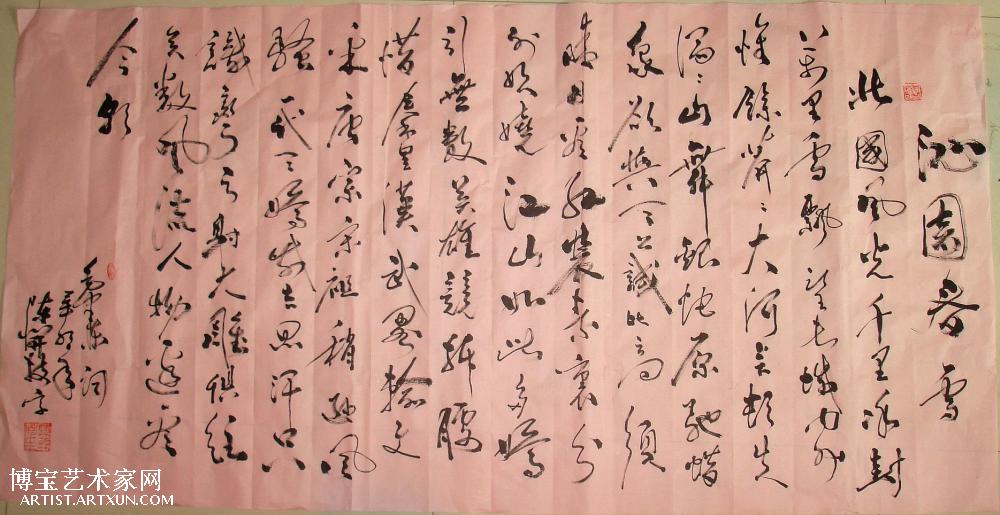 沁園春雪
北國風光千里冰封
万里雪飄望长城内外
惟餘莽々大河上下頓失
滔々山舞銀蛇原馳蠟
象欲與天公試比高須
晴日看紅裝素裹分
外妖嬈江山如此多嬌
引無數英雄競折腰
惜秦皇漢武略輸文
采唐宗宋祖稍遜風
騷一代天驕成吉思汗只
識彎弓射大雕俱往
矣数風流人物還看
今朝
毛泽东词
辛卯年
陈 字
博宝艺术家网
ARTIST.ARTXUN.COM